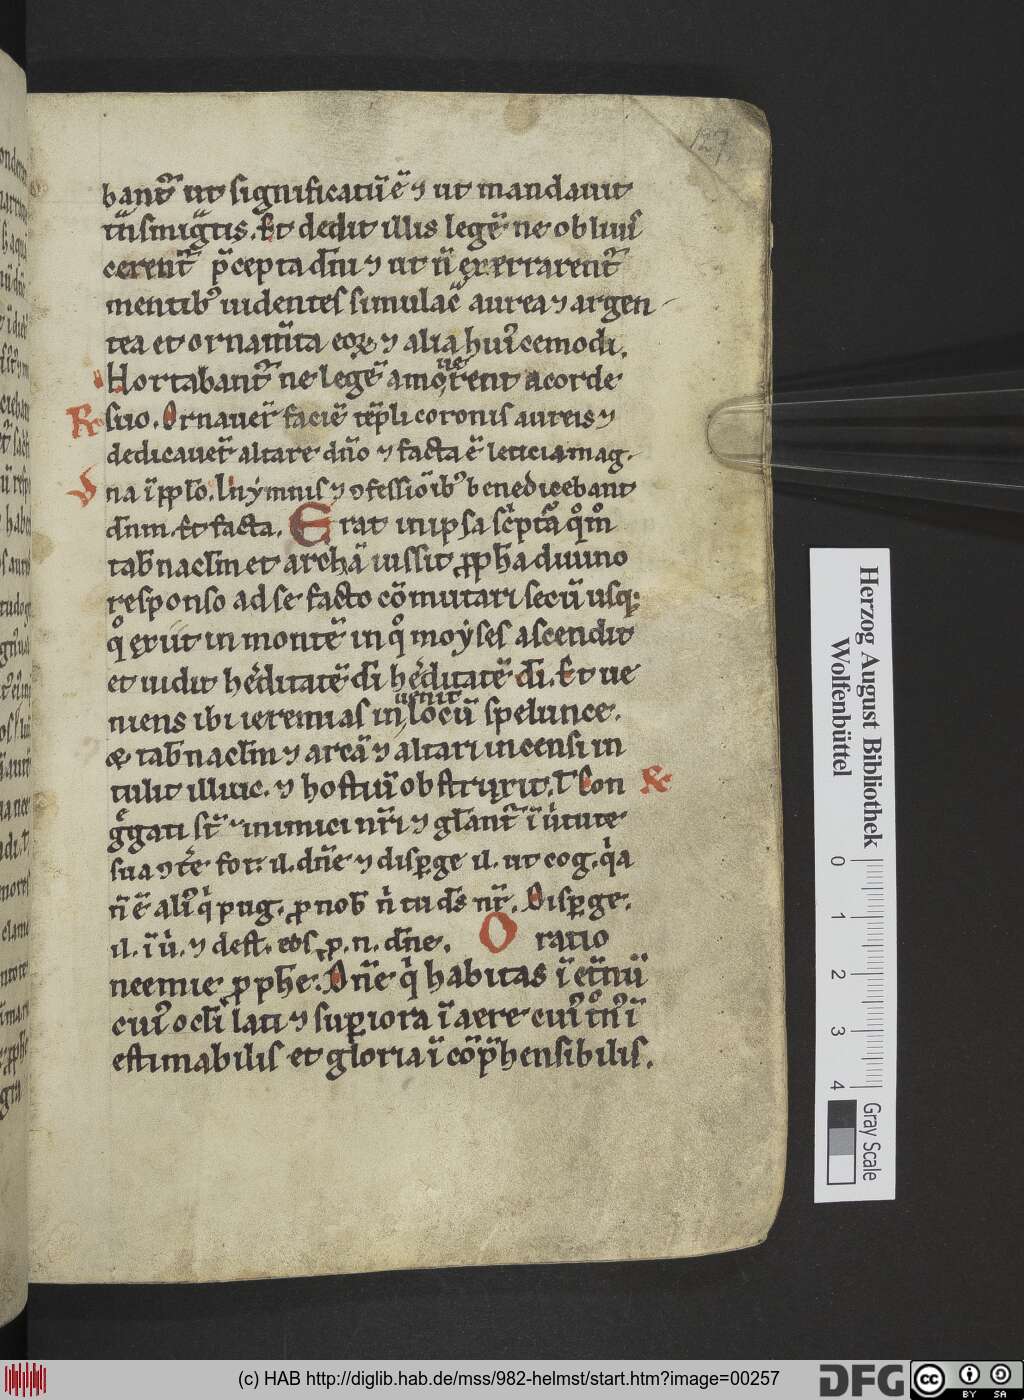 127
bant᷑ ut significatū ē ⁊ ut mandauit
tͣnsmigͣtis. Et dedit illis legē ne obliuis
cerent᷑ p̄cepta dn̄i ⁊ ut n̄ exerrarent᷑
mentib᷒ uidentes simulac̄ aurea ⁊ argen
tea et ornam̄ta eoꝝ ⁊ alia hui᷒cemodi.
Hortabant᷑ ne legē amouerent a corde
R suo. Ornauer̄ faciē tēpli coronis aureis ⁊
dedicauer̄ altare dn̄o ⁊ facta ē leticia mag
V na ī pp̄lo. In ẏmnis ⁊ ꝯfessiōib᷒ benedicebant
dn̄m. Et facta. Erat in ipsa sc̄pta᷑ qͦm̊
tab̄nacl̄m et archā iussit ꝓph̄a diuino
responso ad se facto cōmutari secū usq;
qͦ exiit in montē in qͦ moẏses ascendit
et uidit h̄editatē dī h̄editatē dī. Et ue
niens ibi ieremias inuenit locū spelunce.
et tab̄nacl̄m ⁊ arcā ⁊ altari incensi in
tulit illuic. ⁊ hostiū obstruxit. Con R
gͦgati st̄ inimici nr̄i ⁊ gl̄ant᷑ ī uͥtute
sua ꝯtͤe for. il. dn̄e ⁊ disp̱ge il. ut cog. qͥa
n̄ ē ali᷒ qͥ pug. ꝓ nob̄ nͥ tu ds̄ nr̄. Disp̱ge.
il. ī uͥ. ⁊ dest. eos ꝓ. n. dn̄e. Oratio
neemie ꝓph̄e. Dn̄e qͥ habitas ī et̄nū
cui᷒ ocl̄i lati ⁊ sup̱iora ī aere cui᷒ tͦn᷒ ī
estimabilis et gloria ī cōp̄hensibilis.
Herzog August Bibliothek
Wolfenbüttel
0 1 2 3 4
Gray Scale
(c) HAB http://diglib.hab.de/mss/982-helmst/start.htm?image=00257
DFG
cc BY SA